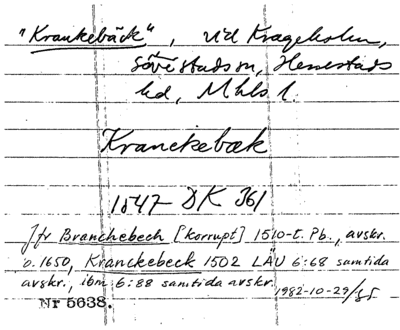 "Krankebäck", vid Krageholm,
Sövestads sn, Herrestads
hd, Mhls l.
Kranckebæk
1547 DK 361
Jfr Branchebech [korrupt] 1510-t. Pb., avskr.
o. 1650, Kranckebeck 1502 LÄU 6:68 samtida
avskr., ibm 6:88 samtida avskr.
1982-10-29/
Nr 5638.